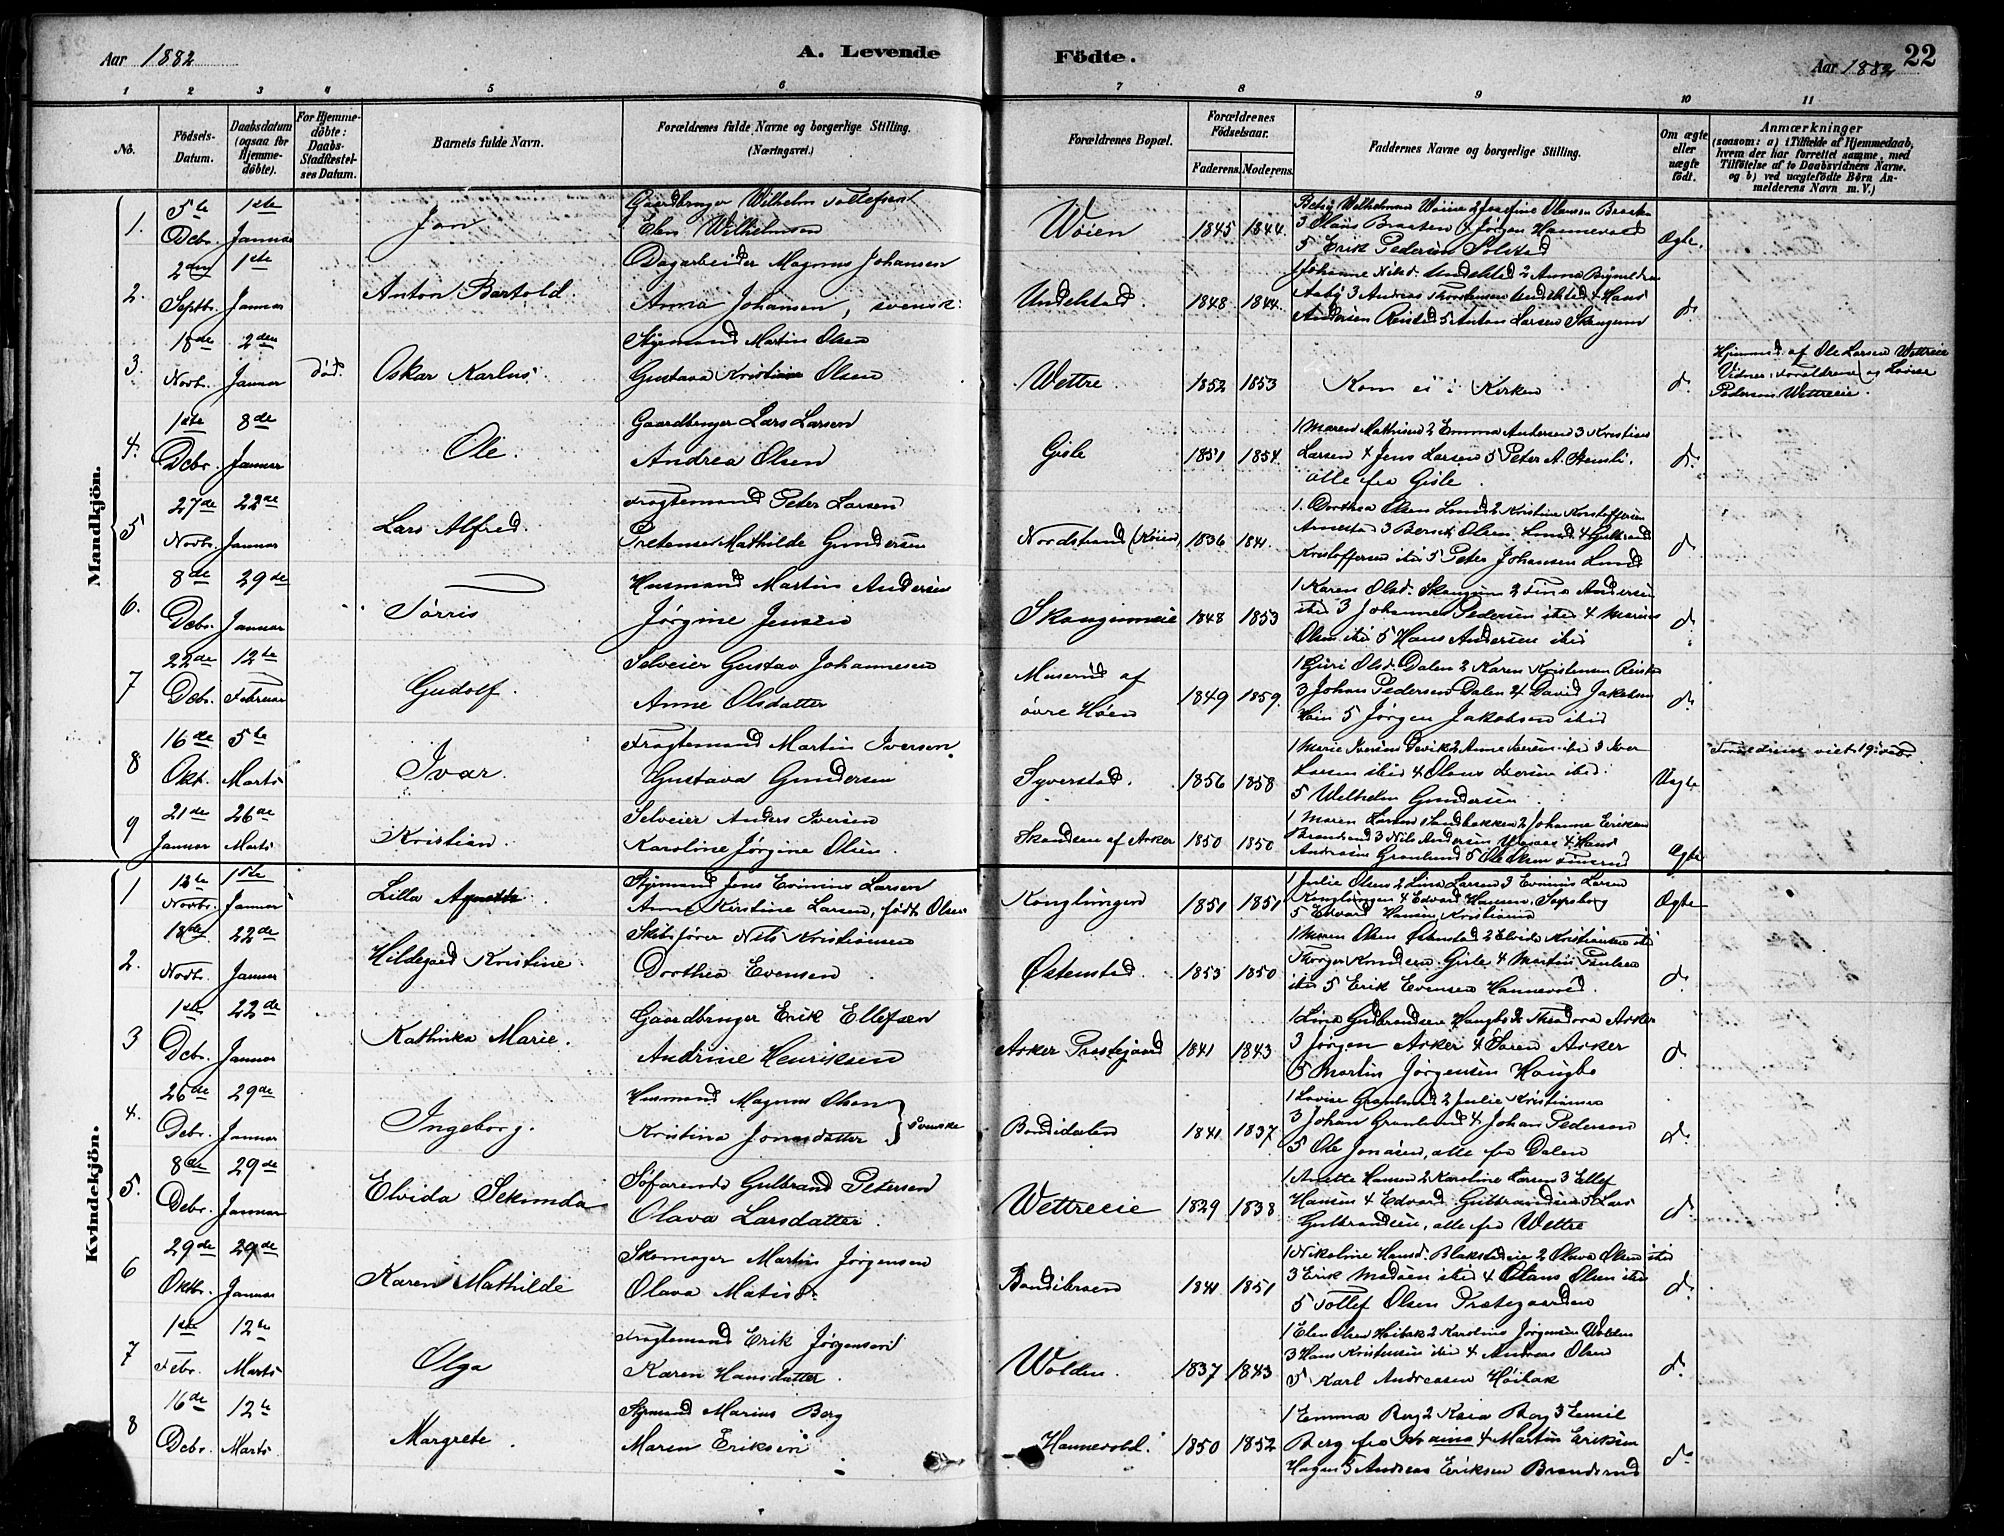 Aar 1882
A. Levende
Födte.
Aar 1882
22
1 2 3 4 5 6 7 8 9 10 11
No.
Födsels-Datum.
Daabsdatum (ogsaa for Hjemme-döbte).
For Hjemme-döbte: Daabs-Stadfæstel-ses Datum.
Barnets fulde Navn.
Forældrenes fulde Navne og borgerlige Stilling.
(Næringsvei.)
Forældrenes Bopæl.
Forældrenes Födselsaar.
Faderens. Moderens.
Faddernes Navne og borgerlige Stilling.
Om ægte eller uægte födt.
Anmærkninger
(saasom: a) i Tilfælde af Hjemmedaab, hvem der har forrettet samme, med Tilföielse af to Daabsvidners Navne, og b) ved uægtefödte Börn An-melderens Navn m. V.)
Mandkjön.
1. 5te Debr. 1ste Januar Jon Gaardbruger Wilhelm Tollefsen
Elen Wilhelmsen Wøien 1845 1844 3 Olaus Braaten 4 Jørgen Hannevold
5 Erik Pedersen Solstad Ægte.
2. 2den Septbr. 1ste Januar Anton Bertold Dagarbeider Magnus Johansen
Anna Johansen, svensk. Undelstad. 1848 1844 3 Andreas Thorstensen Undelstad 4 Hans
Andersen Reistad 5 Anton Larsen Skaugum do
3. 18de Novbr. 2den Januar død. Oskar Karlus Styrmand Martin Olsen
Gustava Kristine Olsen Wettre 1852 1853 Kom ei i Kirken do Hjemmed. af Ole Larsen Wettreeie
Vidner: Forældrene og Lovise
Pedersen Wettreeie.
4. 1ste Debr. 8de Januar Ole Gaardbruger Lars Larsen
Andrea Olsen Gisle 1851 1854 1 Maren Mathisen 2 Emma Andersen 3 Kristian
Larsen 4 Jens Larsen 5 Peter A. Stensli,
alle fra Gisle. do
5 27de Novbr. 22de Januar Lars Alfred. Fragtemand Peter Larsen
Mathilde Gundersen Nordstrand (Høien) 1836 1841 1. Dorthea Olsen Lund 2 Kristine Kristoffersen
Arnestad 3 Bernt Olsen Lund 4 Gulbrand
Kristoffersen ibid 5 Peter Johansen Lund do
6. 8de Debr. 29de Januar Tørris Husmand Martin Andersen
Jørgine Jensen Skaugumeie 1848 1853 1 Karen Olsd. Skaugum 2 Tina Andersen
ibid 3 Johannes Pedersen ibid 4 Marius
Olsen ibid 5 Hans Andersen ibid do
7 22de Debr. 12te Februar Gudolf. Selveier Gustav Johannesen
Anne Olsdatter Muserud af
øvre Høen 1849 1859. 1 Guri Olsd. Dalen 2 Karen Kristensen Reistad
3 Johan Pedersen Dalen 4 David Jakobsen
Høen 5 Jørgen Jakobsen ibid do
8 16de Okt. 5te Marts Ivar. Fragtemand Martin Iversen
Gustava Gundersen Syverstad. 1856 1858 1 Marie Iversen Gevik 2 Anne Iversen ibid 3 Iver
Larsen ibid 4 Olaus Iversen ibid.
5 Wilhelm Gundersen Uægte
9 21de Januar 26de Marts Kristian. Selveier Anders Iversen
Karoline Jørgine Olsen. Skandsen af Asker 1850 1850 1 Maren Larsen Sandbakken 2 Johanne Eriksen
Brendsrud 3 Nils Andersen 4 Hans
Andersen Grønlund 5 Ole Olsen Ægte
Kvindekjön.
1 12te Novbr. 1ste Januar Lilla Agnethe Styrmand Jens Evinius Larsen
Anne Kirstine Larsen, født Olsen Konglungen 1851 1851 1 Julie Olsen 2 Lina Larsen 3 Evinius Larsen
Konglungen 4 Edvard Hansen, Sarpsborg
5 Edvard Hansen Kristiania Ægte
2. 18de Novbr. 22de Januar Hildegard Kristine. Skibsfører Nils Kristiansen
Dorthea Evensen Østenstad. 1853 1850 1 Maren Olsen Østenstad 2 Elvida Kristiansen ibid
Thorger Knudsen Gisle 4 Martin Paulsen
ibid 5 Erik Evensen Hannevold. do
3 1ste Debr. 22de Januar Kathinka Marie. Gaardbruger Erik Ellefsen
Andrine Henriksen Asker Præstegaard 1841 1843 1 Lina Gulbrandsen Haugbo 2 Theodora Asker
3 Jørgen Asker 4 Søren Asker
5 Martin Jørgensen Haugbo do
4. 26de Debr. 29de Januar Ingeborg. Husmand Magnus Olsen
Kristina Jonasdatter } svenske Bondidalen 1841 1837 1 Lovise Grønlund 2 Julie Kristiansen
3 Johan Grønlund 4 Johan Pedersen
5 Ole Jonasen, alle fra Dalen do
5. 8de Debr. 29de Januar Elvida Sekunda Søfarende Gulbrand Petersen
Olava Larsdatter. Wettreeie 1829 1838 1 Anette Hansen 2 Karoline Larsen 3 Ellef
Hansen 4 Edvard Gulbrandsen 5 Lars
Gulbrandsen, alle fra Wettre do
6 29de Oktbr. 29de Januar Karen Mathilde Skomager Martin Jørgensen
Olava Matisd. Bondibraaten 1841 1851 1 Nikoline Hansd. Blakstadeie 2 Olava Olsen ibid
3 Erik Madsen ibid 4 Olaus Olsen ibid
5 Tollef Olsen Præstegaarden do
7 1ste Febr. 12te Marts Olga Fragtemand Erik Jørgensen
Karen Hansdatter. Wolden. 1837 1843 1 Elen Olsen Høibak 2 Karoline Jørgensen Wolden
3 Hans Kristensen ibid 4 Andreas Olsen
5 Karl Andreasen Høibak do
8 16de Debr. 12te Marts Margrete. Styrmand Marius Berg
Maren Eriksen Hannevold. 1850 1852 1 Emma Berg 2 Kaia Berg 3 Emil
Berg fra 4 Martin Eriksen
Hagen 5 Andreas Eriksen Brendsrud do